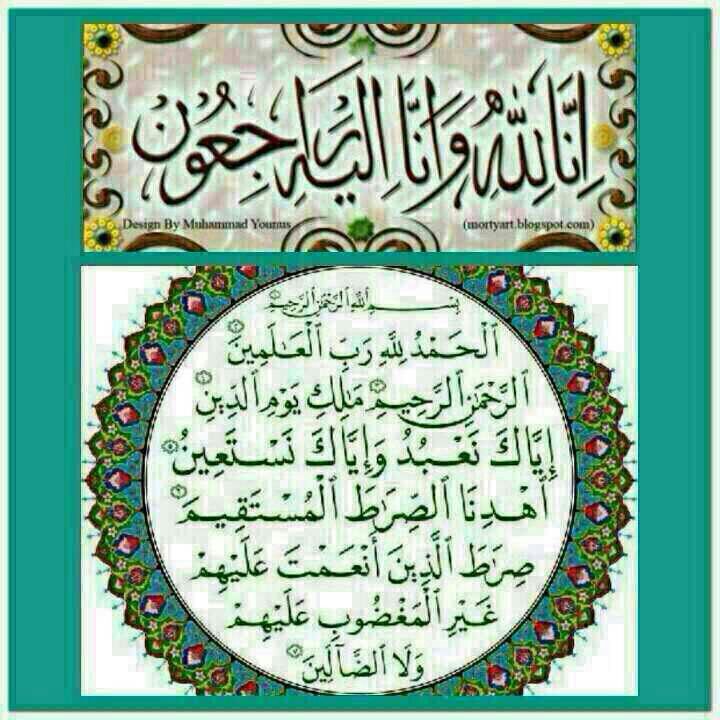 اِنَّا لِلّٰهِ وَاِنَّا اِلَيْهِ رَاجِعُوْنَ
Design By Muhammad Younus
(mortyart.blogspot.com)
بِسْمِ ٱللَّهِ ٱلرَّحْمَٰنِ ٱلرَّحِيمِ ١
ٱلْحَمْدُ لِلَّهِ رَبِّ ٱلْعَٰلَمِينَ ٢
ٱلرَّحْمَٰنِ ٱلرَّحِيمِ ٣ مَٰلِكِ يَوْمِ ٱلدِّينِ ٤
إِيَّاكَ نَعْبُدُ وَإِيَّاكَ نَسْتَعِينُ ٥
ٱهْدِنَا ٱلصِّرَٰطَ ٱلْمُسْتَقِيمَ ٦
صِرَٰطَ ٱلَّذِينَ أَنْعَمْتَ عَلَيْهِمْ
غَيْرِ ٱلْمَغْضُوبِ عَلَيْهِمْ
وَلَا ٱلضَّآلِّينَ ٧